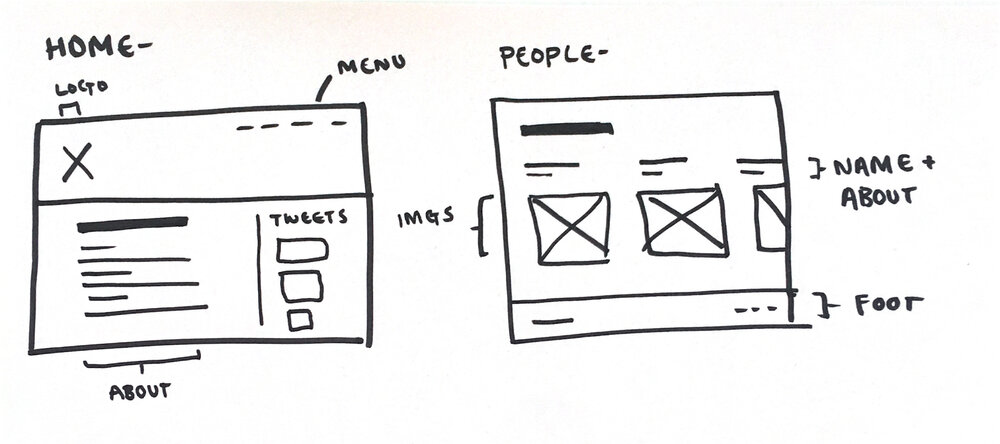 HOME-
LOGO
MENU
TWEETS
ABOUT
PEOPLE-
NAME +
ABOUT
IMGS
FOOT